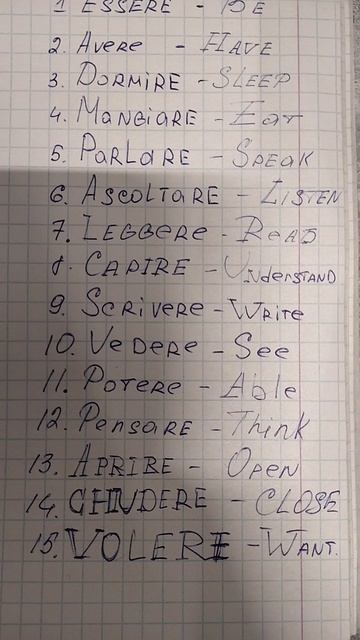 1 ESSERE - BE
2. Avere - HAVE
3. DORMIRE - SLEEP
4. MANGIARE - Eat
5. PARLARE - SPEAK
6. ASCOLTARE - LISTEN
7. LEGGERE - READ
8. CAPIRE - UNDERSTAND
9. SCRIVERE - WRITE
10. VEDERE - See
11. POTERE - Able
12. PENSARE - Think
13. APRIRE - OPEN
14. CHIUDERE - CLOSE
15. VOLERE - WANT.